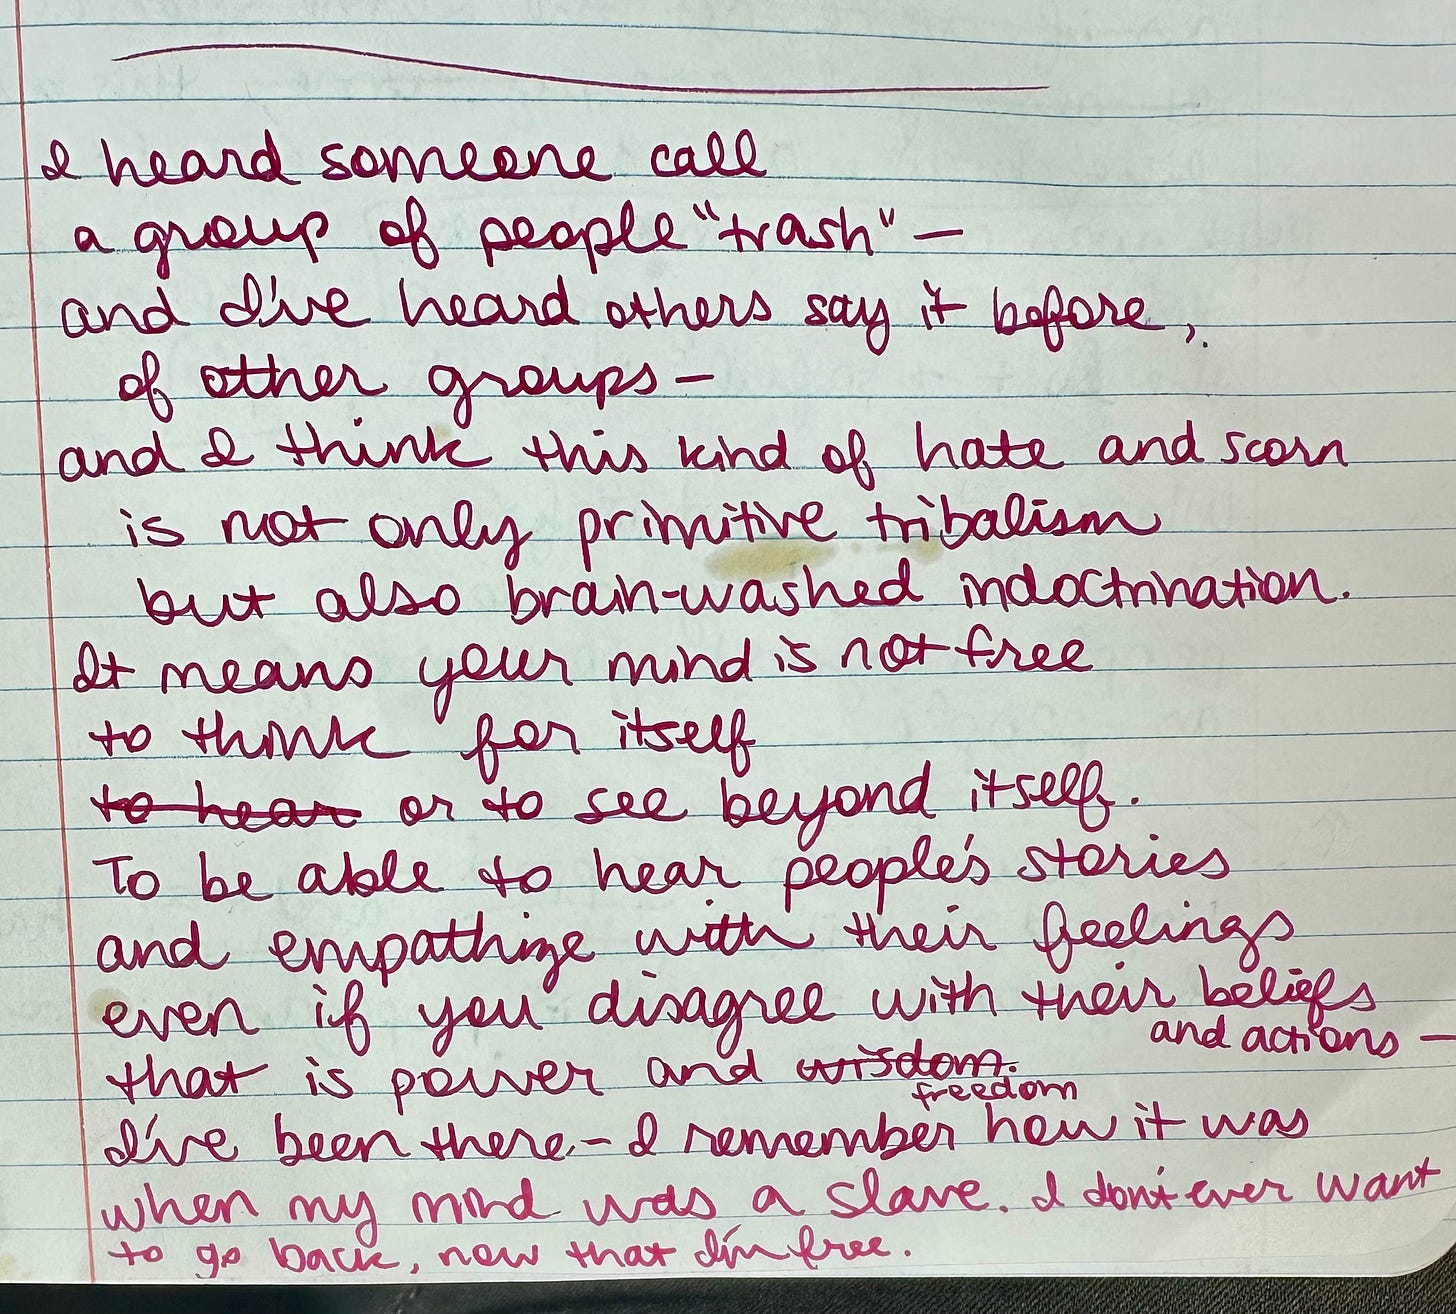 I heard someone call
a group of people "trash" —
and I've heard others say it before,
of other groups —
and I think this kind of hate and scorn
is not only primitive tribalism
but also brain-washed indoctrination.
It means your mind is not free
to think for itself
to hear or to see beyond itself.
To be able to hear people's stories
and empathize with their feelings
even if you disagree with their beliefs
and actions —
that is power and wisdom.
freedom
I've been there — I remember how it was
when my mind was a slave. I don't ever want
to go back, now that I'm free.